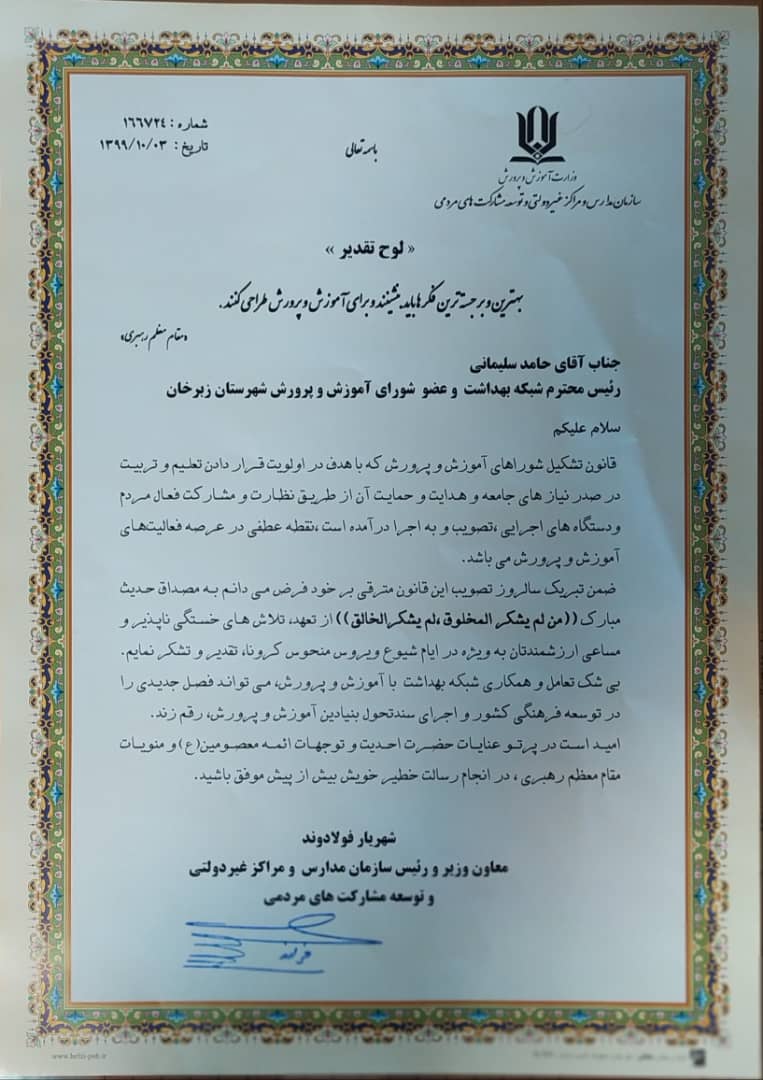 باسمه تعالی
شماره : ۱۶۶۷۲۴
تاریخ : ۱۳۹۹/۱۰/۰۳
وزارت آموزش و پرورش
سازمان مدارس و مراکز غیردولتی و توسعه مشارکت های مردمی
« لوح تقدیر »
بهترین و برجسته ترین فکر ها باید بنشینند و برای آموزش و پرورش طراحی کنند.
«مقام معظم رهبری»
جناب آقای حامد سلیمانی
رئیس محترم شبکه بهداشت و عضو شورای آموزش و پرورش شهرستان زبرخان
سلام علیکم
قانون تشکیل شوراهای آموزش و پرورش که با هدف در اولویت قرار دادن تعلیم و تربیت
در صدر نیاز های جامعه و هدایت و حمایت آن از طریق نظارت و مشارکت فعال مردم
ودستگاه های اجرایی ،تصویب و به اجرا درآمده است ،نقطه عطفی در عرصه فعالیت‌های
آموزش و پرورش می باشد.
ضمن تبریک سالروز تصویب این قانون مترقی بر خود فرض می دانم به مصداق حدیث
مبارک ((من لم یشکر المخلوق ،لم یشکرالخالق)) از تعهد، تلاش های خستگی ناپذیر و
مساعی ارزشمندتان به ویژه در ایام شیوع ویروس منحوس کرونا، تقدیر و تشکر نمایم.
بی شک تعامل و همکاری شبکه بهداشت با آموزش و پرورش، می تواند فصل جدیدی را
در توسعه فرهنگی کشور و اجرای سندتحول بنیادین آموزش و پرورش، رقم زند.
امید است در پرتو عنایات حضرت احدیت و توجهات ائمه معصومین(ع) و منویات
مقام معظم رهبری ، در انجام رسالت خطیر خویش بیش از پیش موفق باشید.
شهریار فولادوند
معاون وزیر و رئیس سازمان مدارس و مراکز غیردولتی
و توسعه مشارکت های مردمی